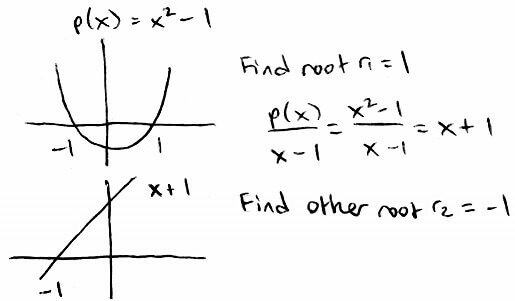 p(x) = x² - 1
-1 1
x + 1
-1
Find root r₁ = 1
p(x)/(x - 1) = (x² - 1)/(x - 1) = x + 1
Find other root r₂ = -1